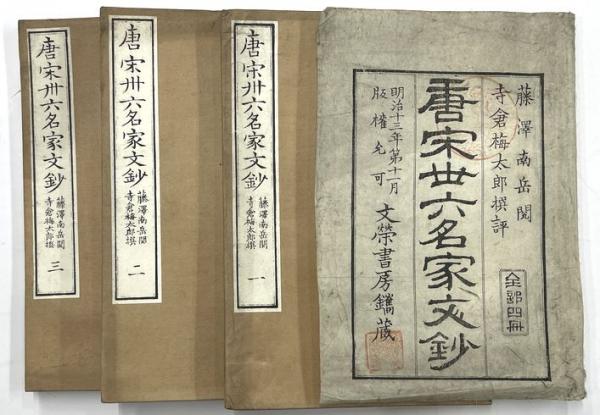 藤澤南岳閲
寺倉梅太郎撰評
全部四冊
唐宋丗六名家文鈔
明治十三年第十一月
版權免可
文榮書房鐫藏
唐宋卅六名家文鈔
藤澤南岳閲
寺倉梅太郎撰
一
唐宋卅六名家文鈔
藤澤南岳閲
寺倉梅太郎撰
二
唐宋卅六名家文鈔
藤澤南岳閲
寺倉梅太郎撰
三